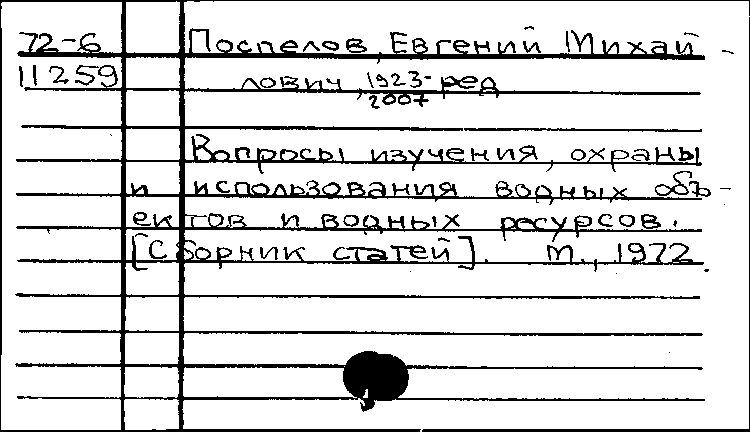 72-6 Поспелов, Евгений Михай-
11259 лович, 1923- ред
2007
Вопросы изучения, охраны
и использования водных объ-
ектов и водных ресурсов.
[Сборник статей]. М., 1972.